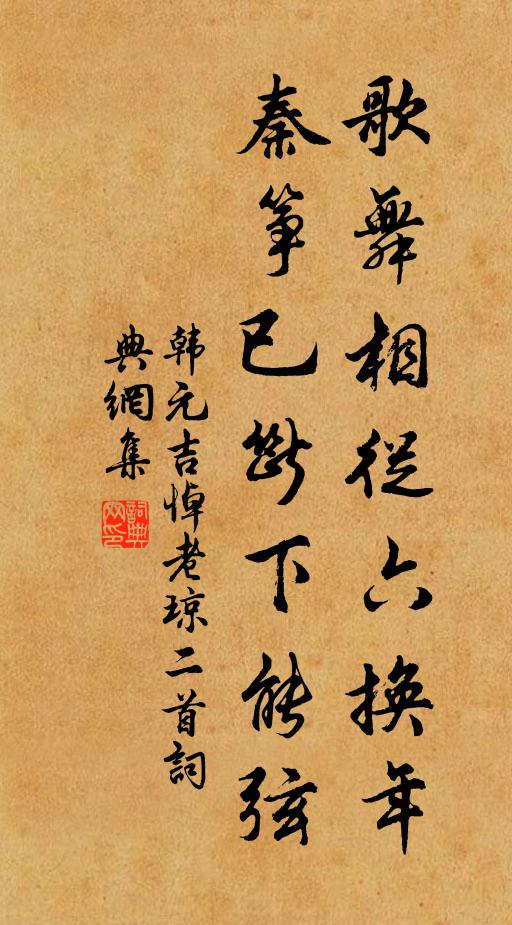 歌舞相從六換年
秦箏已斷下能弦
韩元吉悼老琼二首詞
典網集
詞典网印